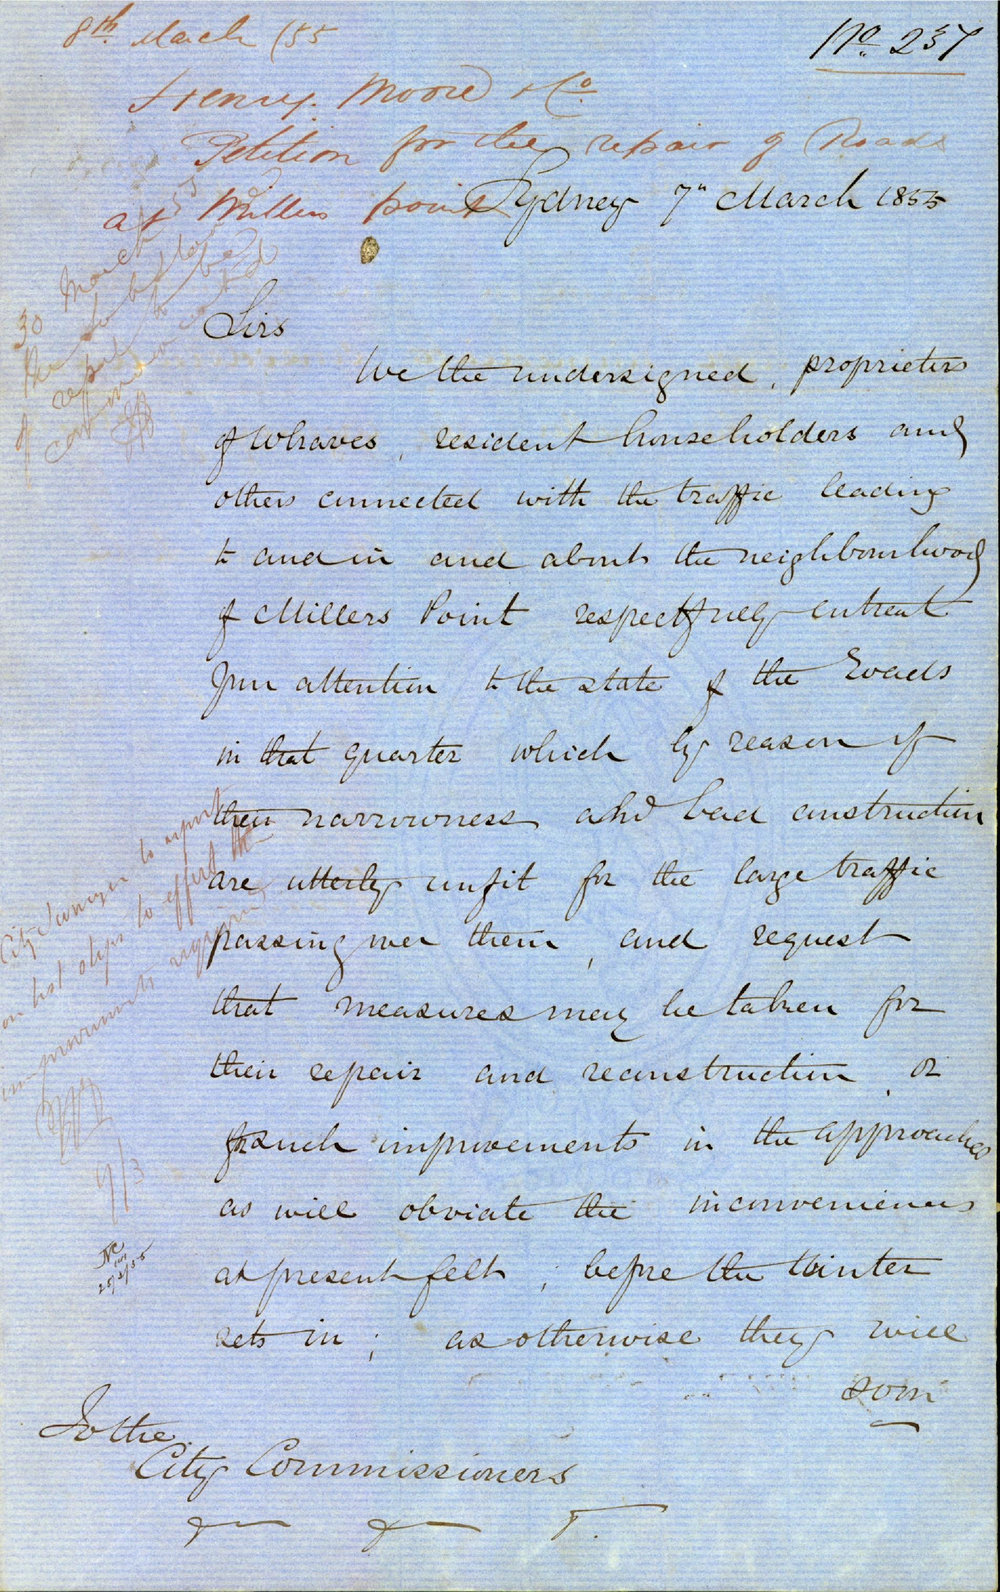 8th. March /55
No. 237
Henry Moore & Co.
Petition for the repair of Roads
at Millers point
Sydney 7" March 1855
30 March 55
to be
Sirs
We the undersigned, proprietors
of Wharves, resident householders and
others connected with the traffic leading
to and in and about the neighbourhood
of Millers Point respectfully entreat
your attention to the state of the roads
in that quarter which by reason of
their narrowness and bad construction
are utterly unfit for the large traffic
passing over them, and request
that measures may be taken for
their repair and reconstruction, or
for such improvements in the approaches
as will obviate the inconveniences
at present felt; before the Winter
sets in; as otherwise they will
soon
City Surveyor to report
on best steps to effect the
improvements required
9/3
To the
City Commissioners